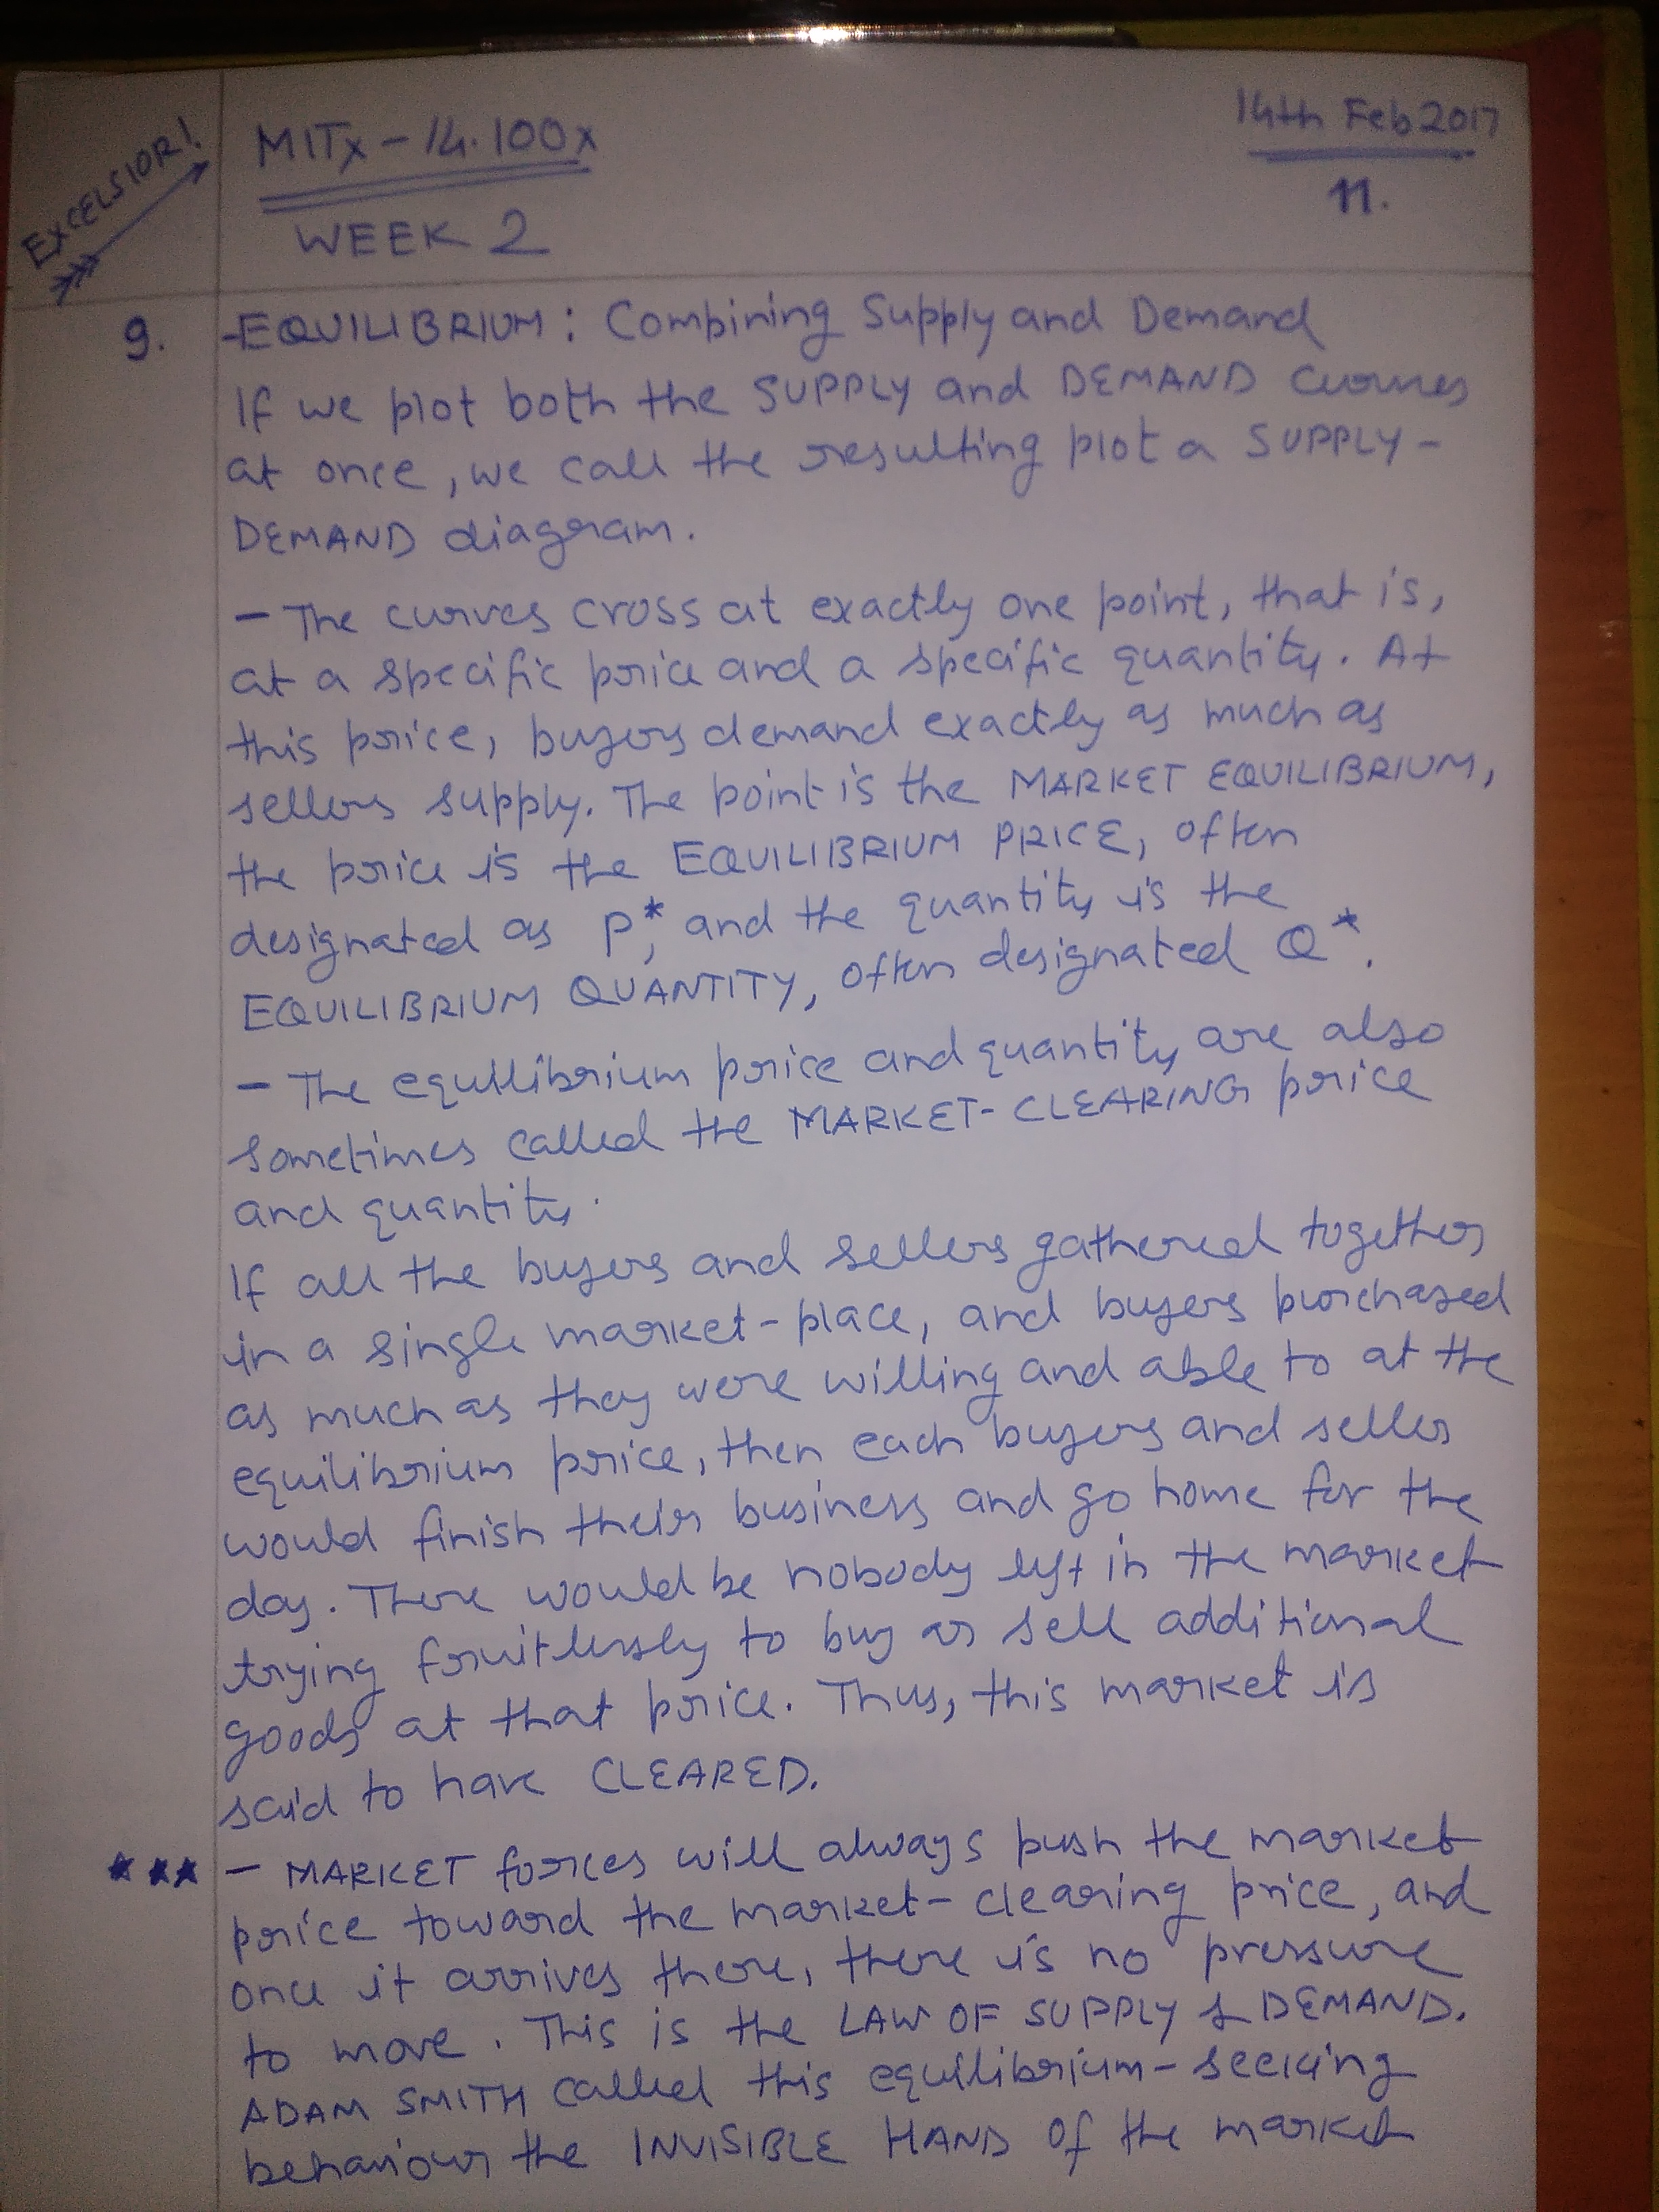 EXCELSIOR!
MITx - 14.100x
14th Feb 2017
WEEK 2
11.
9. EQUILIBRIUM: Combining Supply and Demand
If we plot both the SUPPLY and DEMAND curves
at once, we call the resulting plot a SUPPLY-
DEMAND diagram.
- The curves cross at exactly one point, that is,
at a specific price and a specific quantity. At
this price, buyers demand exactly as much as
sellers supply. The point is the MARKET EQUILIBRIUM,
the price is the EQUILIBRIUM PRICE, often
designated as P*, and the quantity is the
EQUILIBRIUM QUANTITY, often designated Q*.
- The equilibrium price and quantity are also
sometimes called the MARKET-CLEARING price
and quantity.
If all the buyers and sellers gathered together
in a single market-place, and buyers purchased
as much as they were willing and able to at the
equilibrium price, then each buyers and seller
would finish their business and go home for the
day. There would be nobody left in the market
trying fruitlessly to buy or sell additional
goods at that price. Thus, this market is
said to have CLEARED.
★★★ - MARKET forces will always push the market
price toward the market-clearing price, and
once it arrives there, there is no pressure
to move. This is the LAW OF SUPPLY & DEMAND.
ADAM SMITH called this equilibrium-seeking
behaviour the INVISIBLE HAND of the market